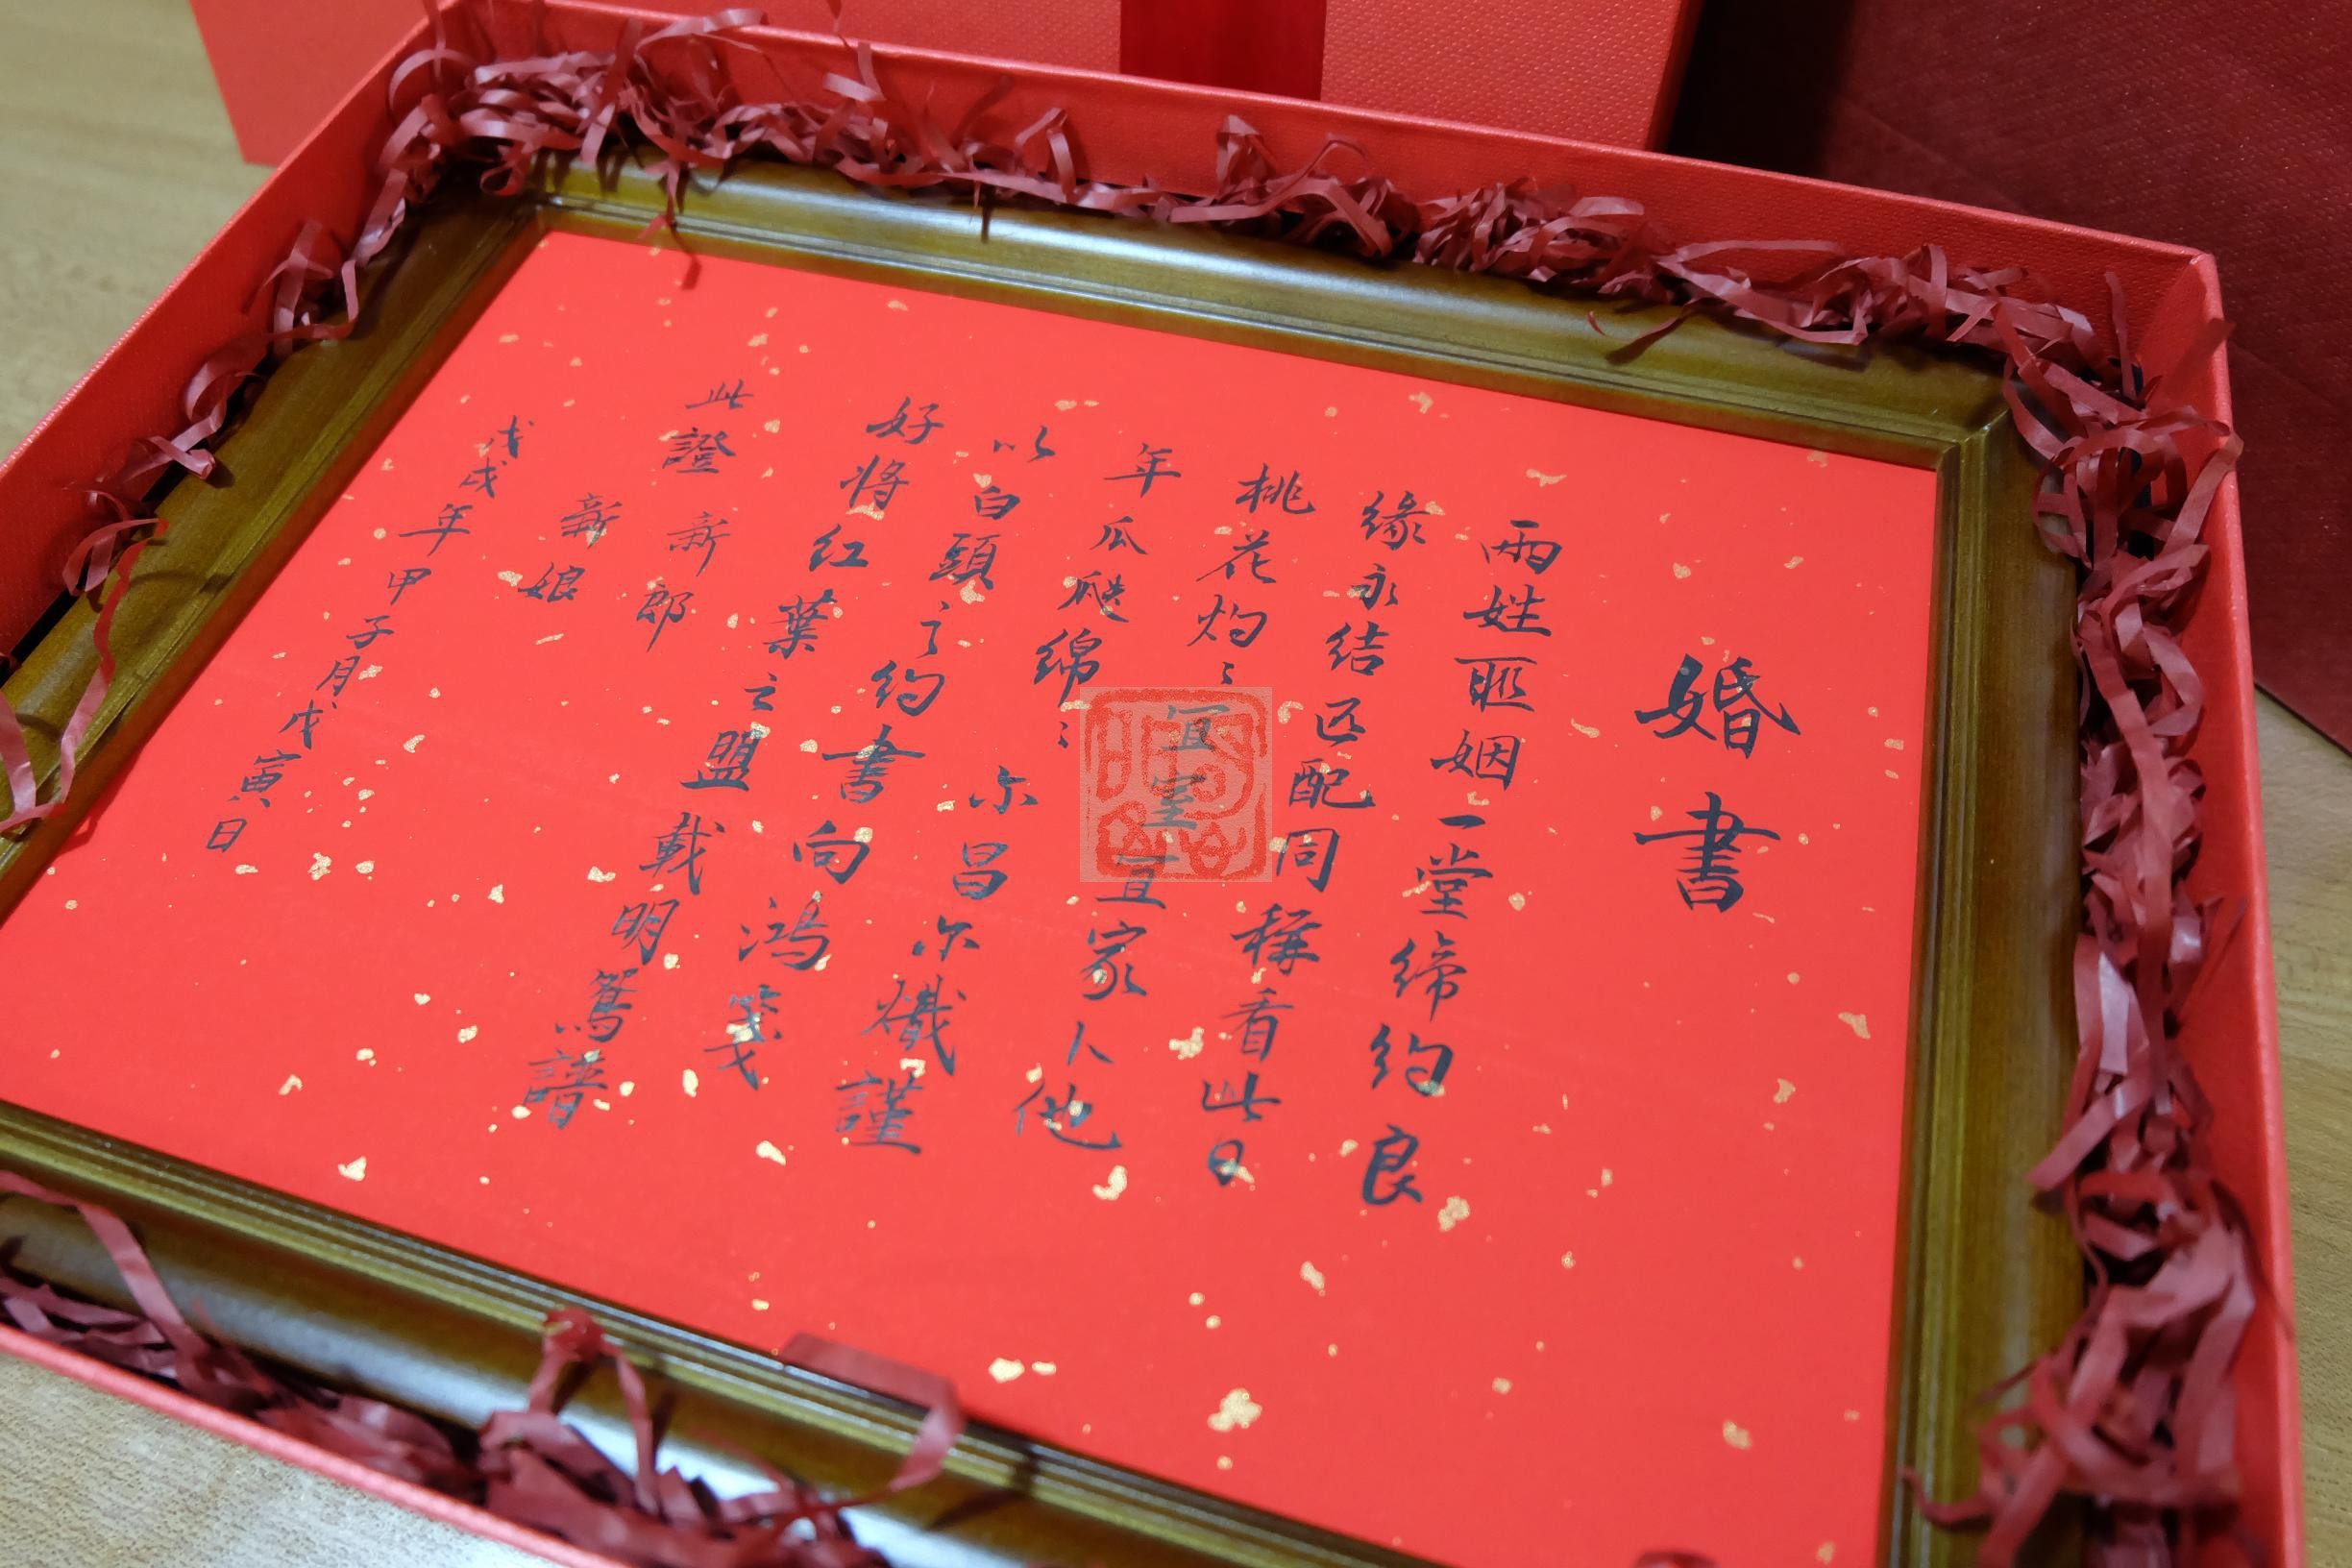 婚書
兩姓联姻一堂締約良
緣永結匹配同稱看此日
桃花灼〻宜室宜家卜他
年瓜瓞綿〻尔昌尔熾謹
以白頭之約書向鴻箋
好將红葉之盟載明鴛譜
此證 新郎
新娘
戊戌年甲子月戊寅日